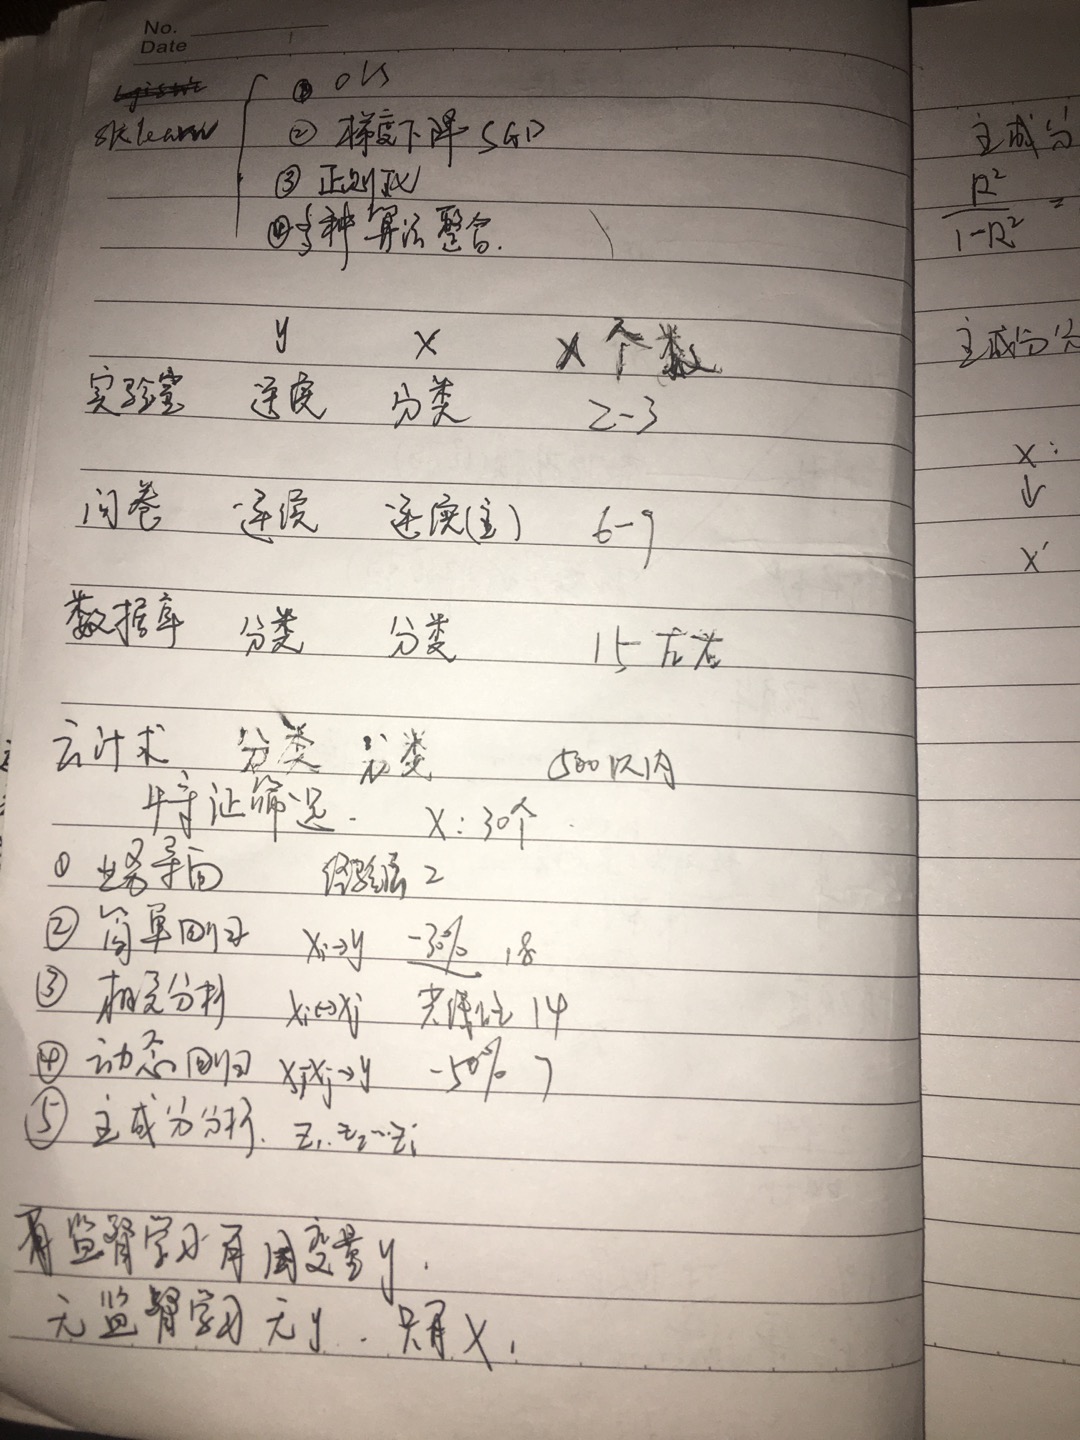 No.
Date
sklearn
① OLS
② 梯度下降 SGD
③ 正则化
④ 多种算法整合.
y x x 个数
实验室 连续 分类 2-3
问卷 连续 连续(主) 6-9
数据库 分类 分类 15 左右
云计术 分类 分类 500以内
特证筛选. x: 30个
① 业务导向 经验法 2
② 简单回归 xi→y -30% 18
③ 相关分析 xi↔xj 共线性 14
④ 动态回归 xi,xj→y -50% 7
⑤ 主成分分析. z₁, z₂…zᵢ
有监督学习有因变量y.
无监督学习无y. 只有X.
主成分
R²
1-R² =
主成分分
x:
↓
x′